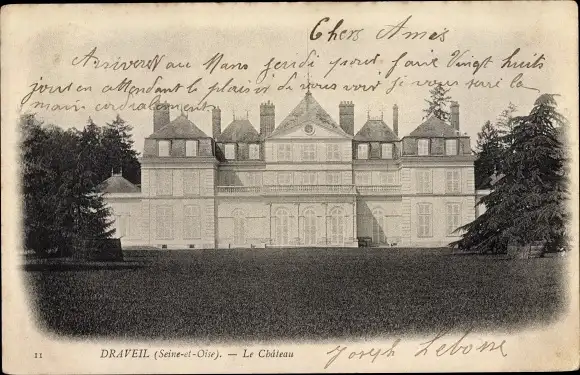 Chers Ames
Arriveront au Mans jeudi pour faire Vingt huits
jour en attendant le plaisir de vous voir je vous serre la
main cordialement
11 DRAVEIL (Seine-et-Oise). — Le Château
Joseph Lebosse